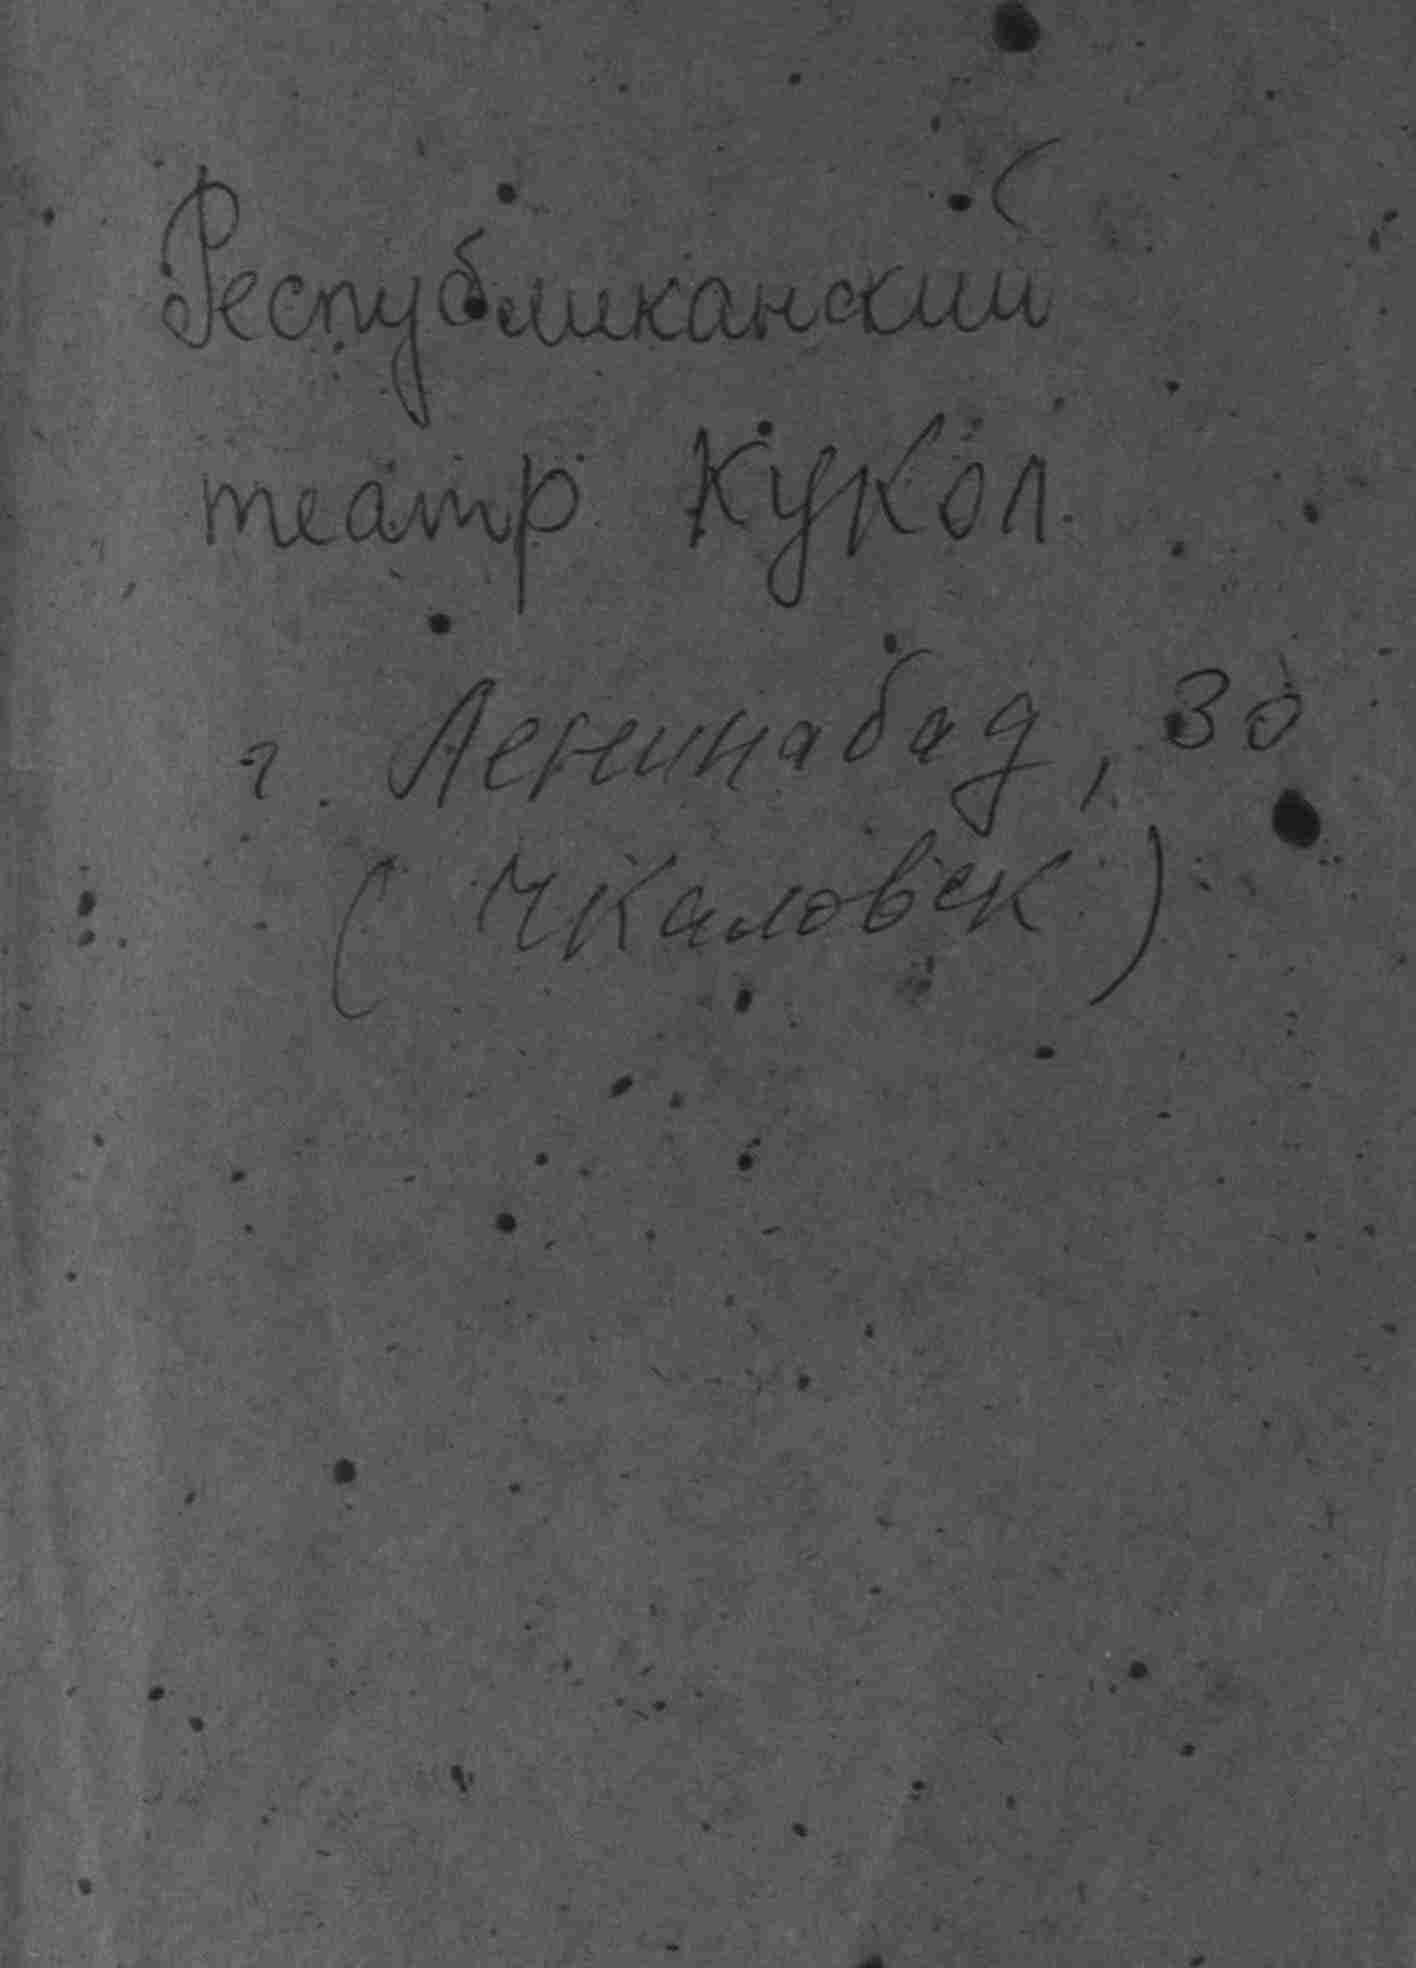 Республиканский
театр Кукол
г. Ленинабад, 30
(Чкаловск)